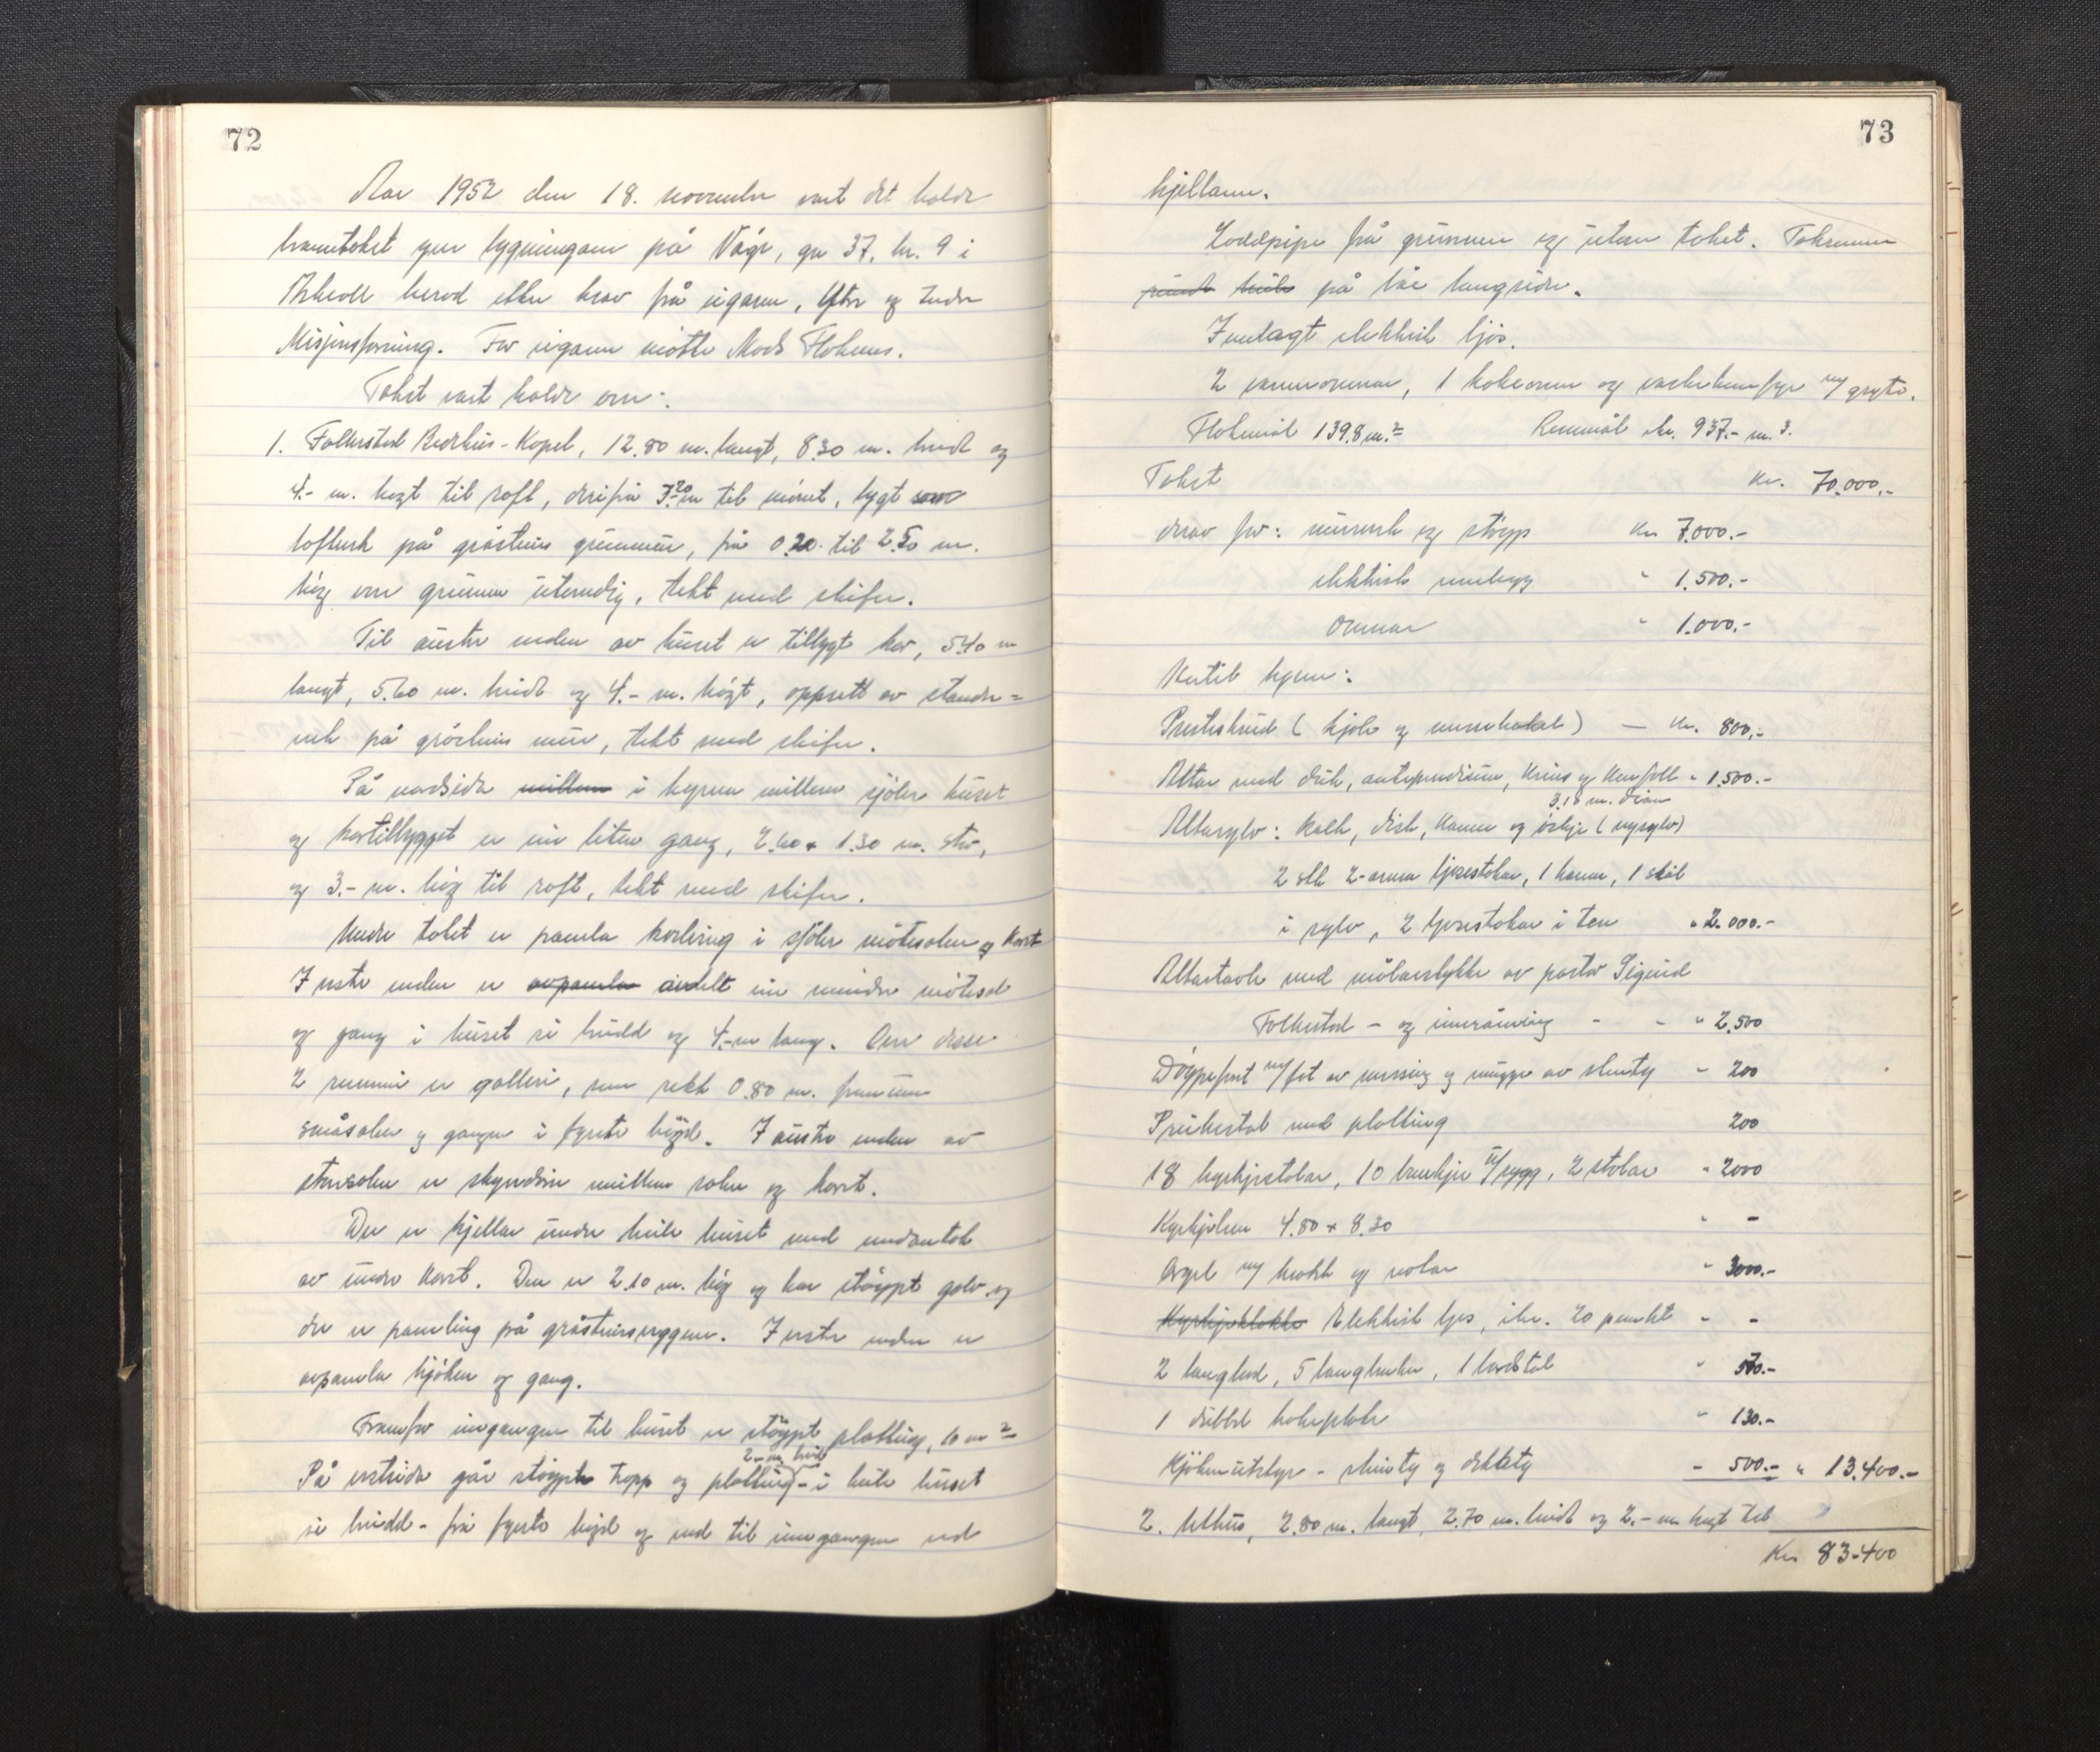 72
Aar 1952 den 18. november vart det halde
branntakst yver bygningane på Vågr, gn 37, br. 9 i
herad etter krav frå eigaren, Ytre og Indre
Misjonsforening. For eigaren møtte Mads Flokenes.
Takst vart halde om:
1. Folkestad Bedehus-Kapel, 12.80 m. langt, 8.30 m. breidt og
4.- m. høgt til roft, derifrå 3.20 m til mönet, bygt som
lofterk på gråsteins grunnmur, frå 0.20 til 2.50 m.
høg over grunnen utvendig, tekt med skifer.
Til austre enden av huset er tilbygt kor, 5.40 m
langt, 5.60 m. breidt og 4.- m. høgt, oppsett av stander=
verk på gråsteins mur, tekt med skifer.
På nordsida millom i kyrne millom sjölve huset
og kortilbygget er ein liten gang, 2.60 x 1.30 m. stor,
og 3.- m. høg til roft, tekt med skifer.
Under taket er panela kvelving i sjölve mötesalen og koret
I vestre enden er avpanela avdelt ein mindre mötesal
og gang i huset si breidd og 4.-m lang. Over desse
2 rummi er galleri, som rekk 0.80 m. framum
småsalen og gangen i fyrste högd. I austre enden av
storsalen er skyvedör millom salen og koret.
Der er kjellar under heile huset med undantak
av under koret. Den er 2.10 m. høg og har støypt golv og
der er paneling på gråsteinsveggene. I vestre enden er
avpanela kjöken og gang.
Framfor inngangen til huset er støypt platting, 10 m²
2.- m breid
På vestsida går støypte trapp og platting - i heile huset
si breidd - frå fyrste högd og ned til inngangen ved
73
kjellaren.
Loddpipe frå grunnen og utover taket. Takrenner
rundt heile på båe langsider.
Innlagt elektrisk ljos.
2 varmeomnar, 1 kokeomn og vaskekumfyr m/ gryte.
Flatemål 139.8 m.² Rummål ikr. 937.- m.³
Takst kr. 70.000,-
derav for: murverk og støyp kr 7.000.-
elektrisk innlegg " 1.500.-
omnar " 1.000.-
Ventil kyrne:
Prestskrud (kjole og messehakel) — kr. 800,-
Altar med duk, antependium, krus og knefall " 1.500.-
3.10 m. diam
Altarsylv: kalk, disk, kanne og öskje (nysylv)
2 stk 2-arma ljosestakar, 1 kanne, 1 skål
i sylv, 2 ljosestakar i ten " 2.000.-
Altartavle med målarstykke av pastor Sigurd
Folkestad - og innråming - - " 2.500
Döypefont m/fat av messing og mugge av stenty - 200
Preikestol med platting 200
18 kyrkjestolar, 10 benkjer m/rygg, 2 stolar " 2000
Kyrkjelem 4.80 x 8.30 " -
Orgel m/ krakk og notar " 3000.-
Kyrkjeklokke Elektrisk ljos, ikr. 20 punkt " -
2 langbord, 5 langbenker, 1 bordstol " 570.-
1 dubbel kokeplate " 130.-
Kjökenutstyr - steinty og dekkety - 500.- " 13.400.-
2. Uthus, 2.80 m. langt, 2.70 m. breidt og 2.- m høgt til
Kr 83.400